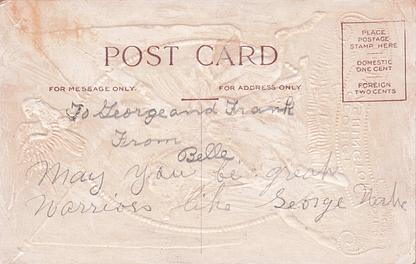 POST CARD
PLACE
POSTAGE
STAMP HERE
DOMESTIC
ONE CENT
FOREIGN
TWO CENTS
FOR MESSAGE ONLY.
FOR ADDRESS ONLY
To George and Frank
From
Belle
May you be great
Warriors like George